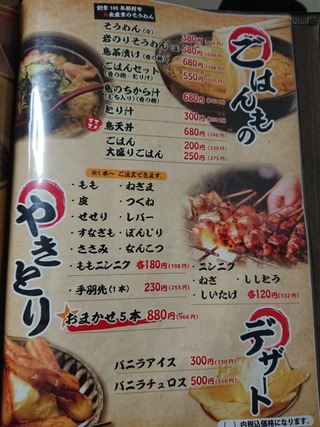 創業100年那部町市
ごはんもの
そうめん(冷) 380円
岩のりそうめん(温) 580円
鳥茶漬け(香の物) 680円
ごはんセット 550円
(香の物・とり汁)
鳥のちから汁 680円
(もち入り)(香の物)
とり汁 300円
オススメ
鳥天丼 680円(748円)
ごはん 200円(220円)
大盛りごはん 250円(275円)
やきとり
※1本～ ご注文できます。
・もも ・ねぎま
・皮 ・つくね
・せせり ・レバー
・すなぎも ・ぼんじり
・ささみ ・なんこつ
・ももニンニク 各180円(198円)
・手羽先(1本) 230円(253円)
おまかせ5本 880円(968円)
・ニンニク
・ねぎ ・ししとう
・しいたけ 各120円(132円)
デザート
バニラアイス 300円(330円)
バニラチュロス 500円(550円)
( )内税込価格になります。